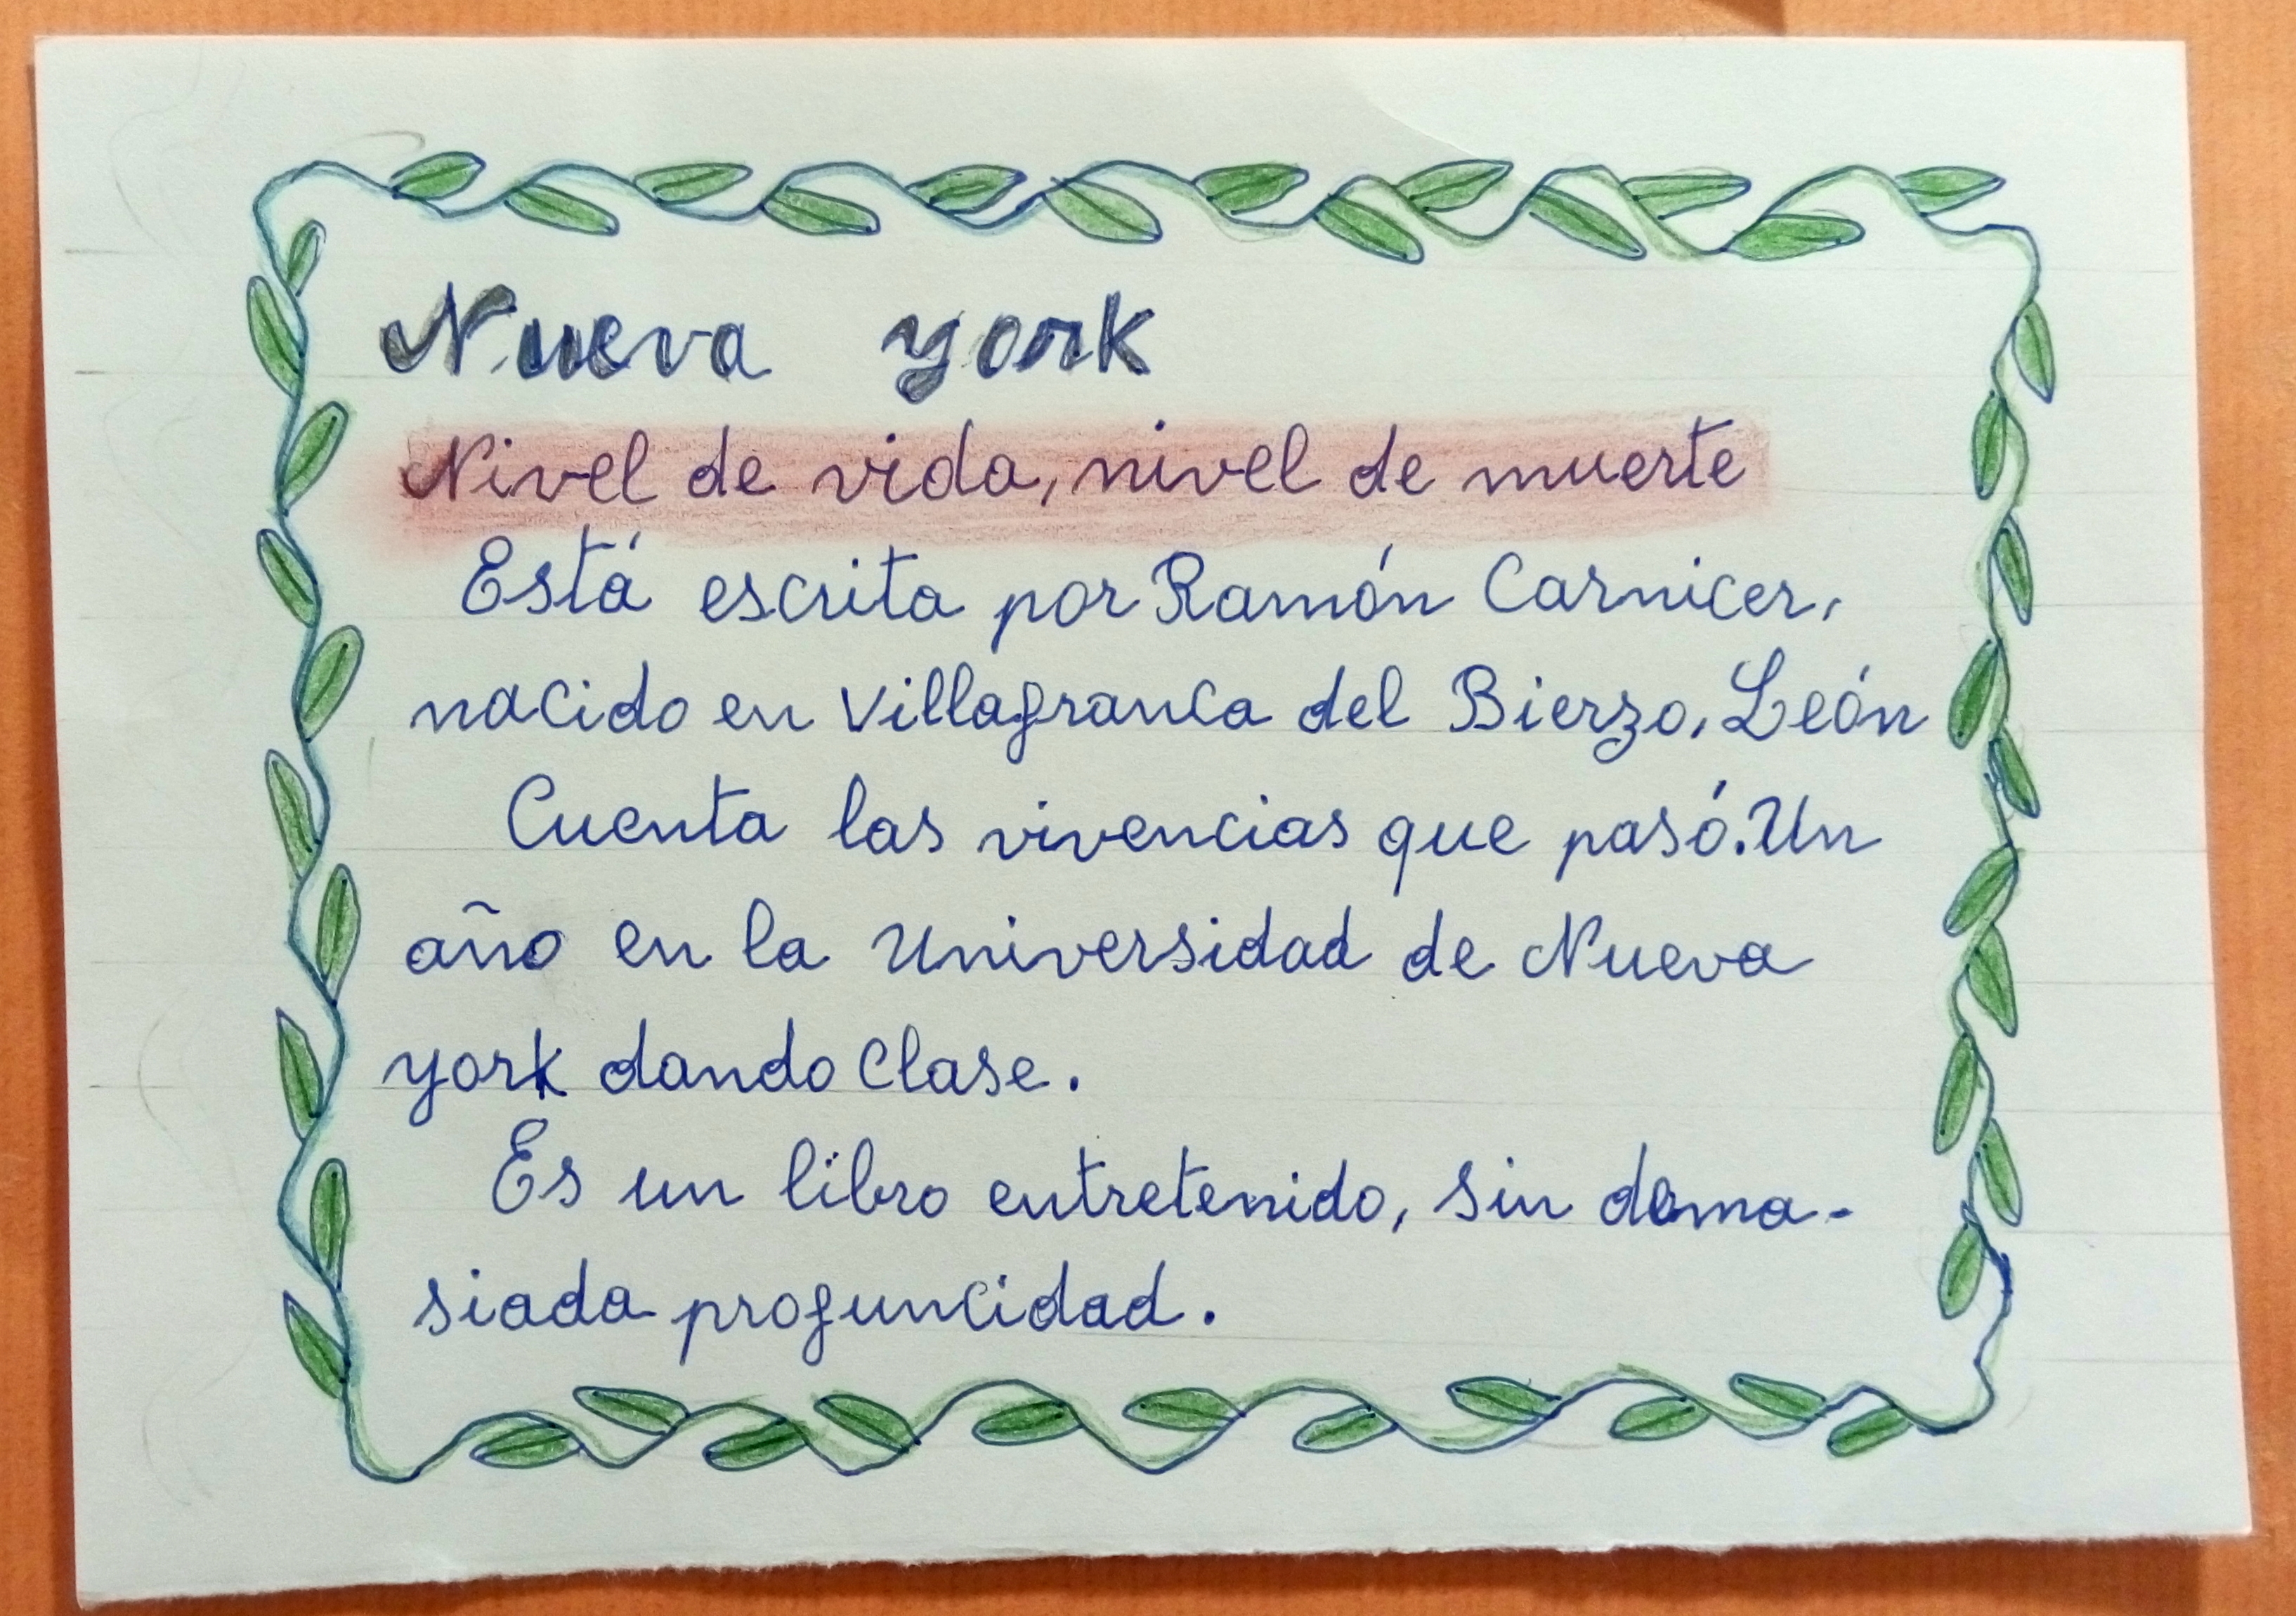 Nueva york
Nivel de vida, nivel de muerte
Está escrita por Ramón Carnicer,
nacido en Villafranca del Bierzo, León
Cuenta las vivencias que pasó. Un
año en la Universidad de Nueva
york dando clase.
Es un libro entretenido, sin dema-
siada profuncidad.